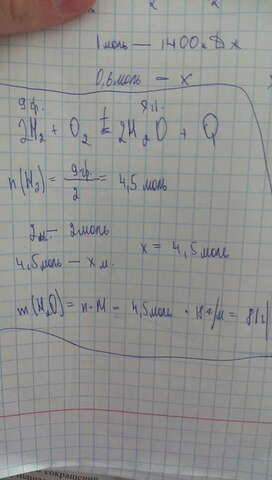 1 моль — 1400 кДж
0,6 моль — x
9 гр. x гр.
2H₂ + O₂ = 2H₂O + Q
n(H₂) = 9 гр / 2 = 4,5 моль
2 м. — 2 моль
4,5 моль — x м. x = 4,5 моль
m(H₂O) = n · M = 4,5 моль · 18 г/м = 81 г
сокращения